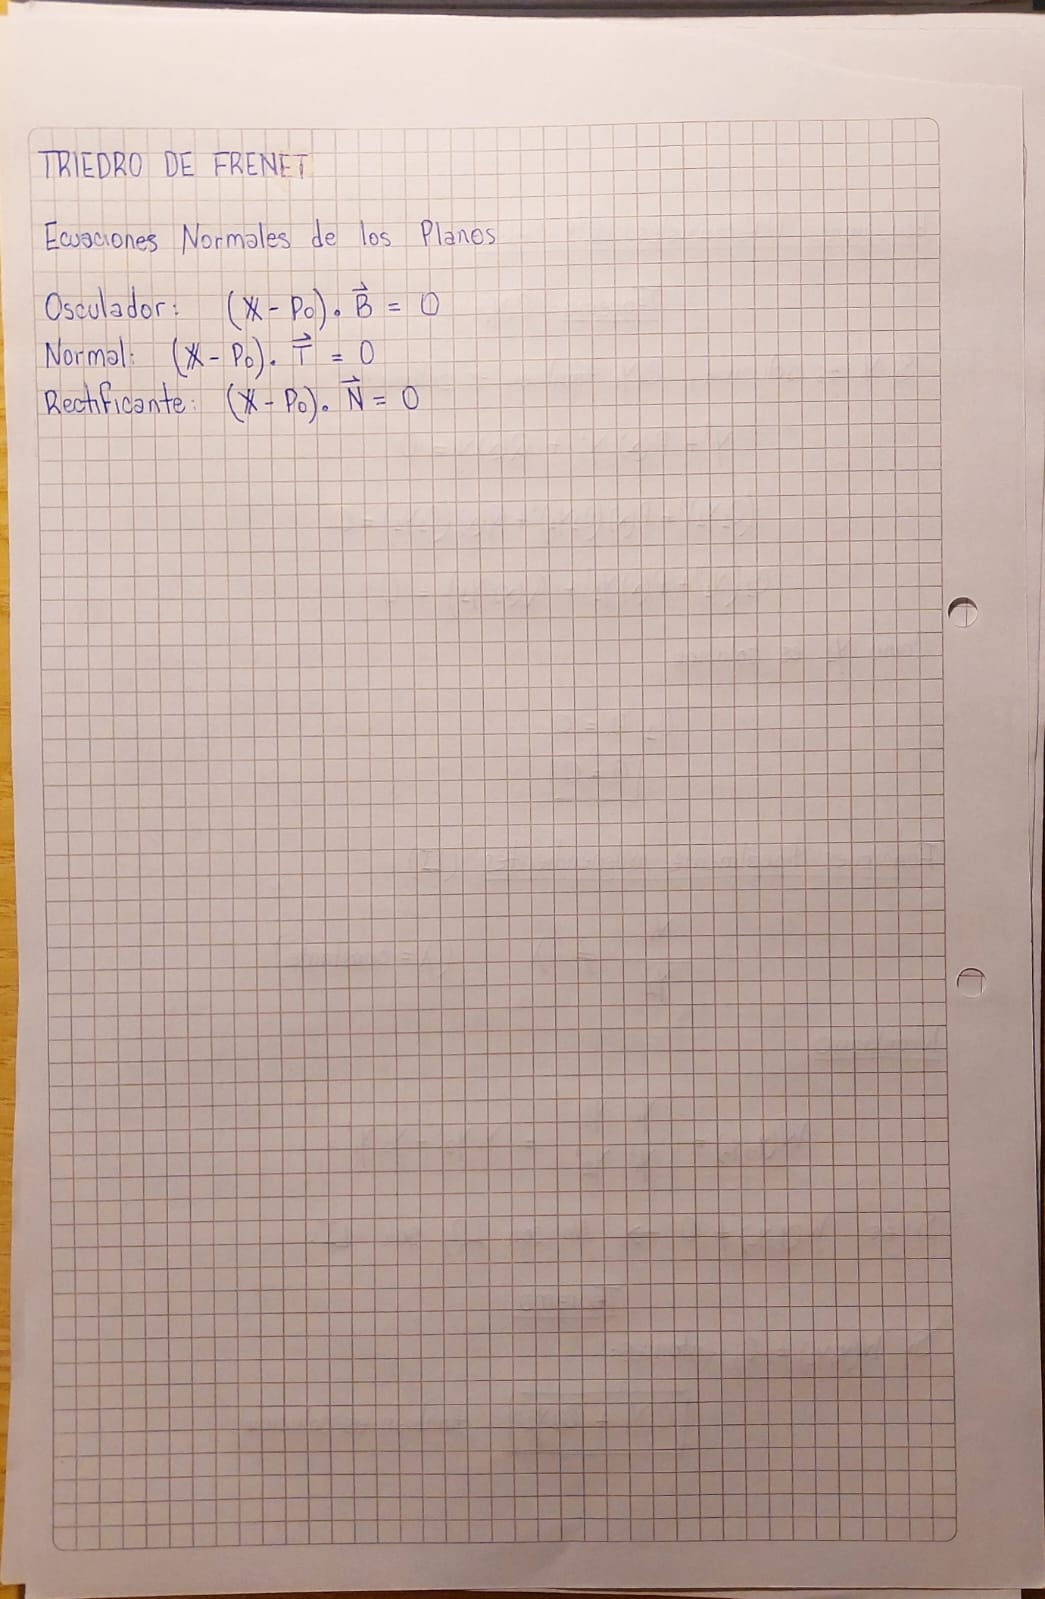 TRIEDRO DE FRENET
Ecuaciones Normales de los Planos
Osculador: (X - P₀) · B⃗ = 0
Normal: (X - P₀) · T⃗ = 0
Rectificante: (X - P₀) · N⃗ = 0